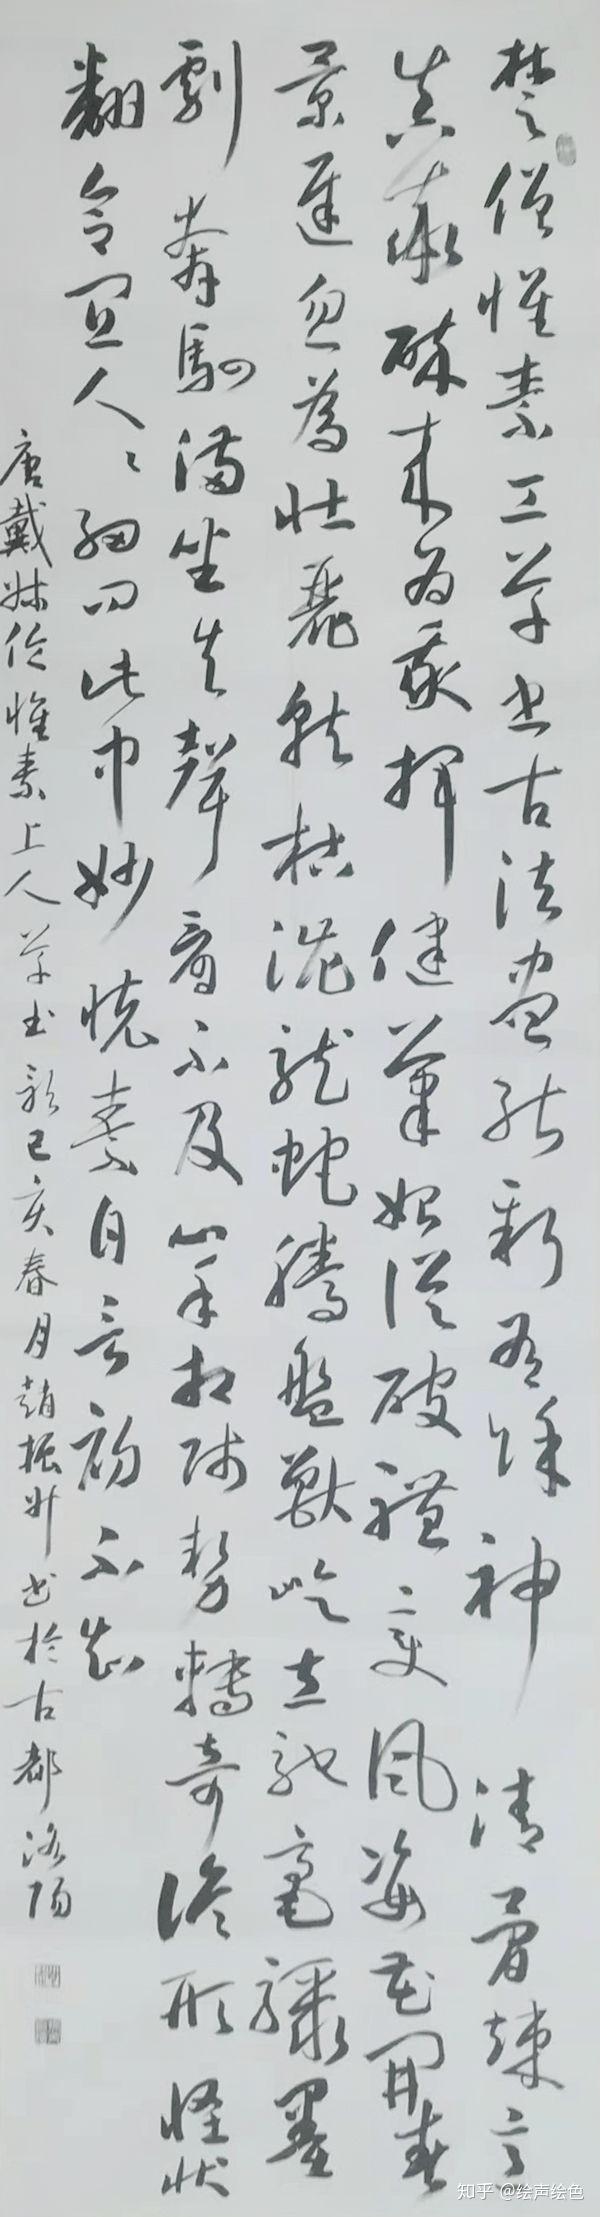 楚僧懷素工草书古法盡能新有餘神清骨竦意
真率醉来为我揮健筆始從破體变風姿花開春
景遲忽為壮麗就枯澁龍蛇騰盤獸屹立馳毫驟墨
劇奔駟滿坐失聲看不及心手相師勢轉奇詭形怪状
翻合宜人々細問此中妙懷素自言初不知
唐戴叔伦懷素上人草书歌己亥春月趙振升书於古都洛阳
知乎 @绘声绘色